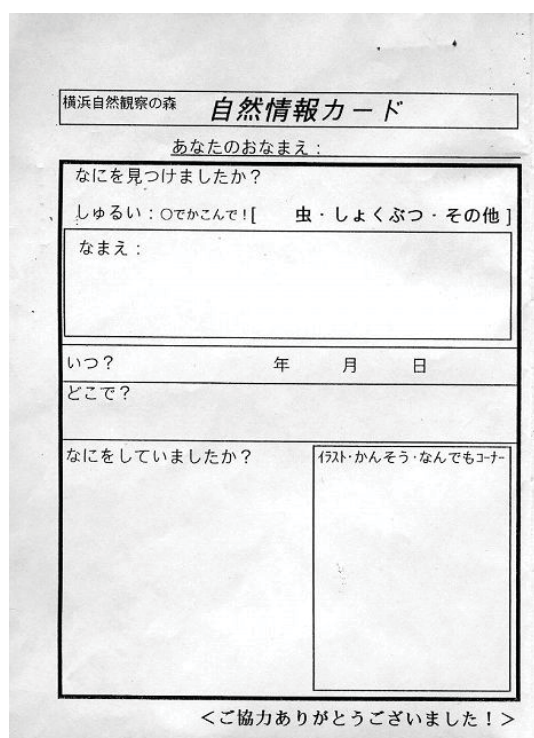 横浜自然観察の森 自然情報カード
あなたのおなまえ：
なにを見つけましたか？
しゅるい：○でかこんで！[ 虫・しょくぶつ・その他 ]
なまえ：
いつ？ 年 月 日
どこで？
なにをしていましたか？ ｲﾗｽﾄ･かんそう･なんでもｺｰﾅｰ
＜ご協力ありがとうございました！＞